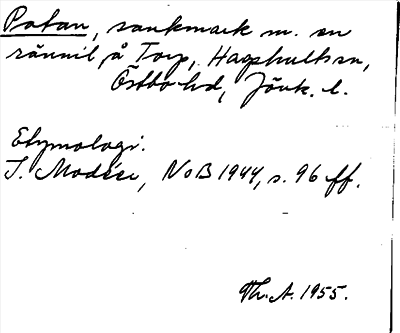 Potan, sankmark m. en
rännil, å Torp, Hagshults sn,
Östbo hd, Jönk. l.
Etymologi:
I. Modéer, NoB 1944, s. 96 ff.
Th. A. 1955.